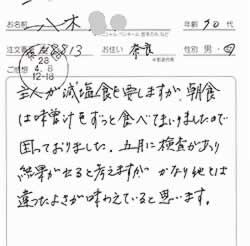 二八木
年齢 70代
注文番号 8813
お住い 奈良
性別 男・
ご感想
28
4.6
12-18
主人が減塩食を要しますが、朝食
は味噌汁をずっと食べてまいりましたので
困っておりました。五月に検査があり
結果がでると考えますが かなり他とは
違ったよさが味わえていると思います。